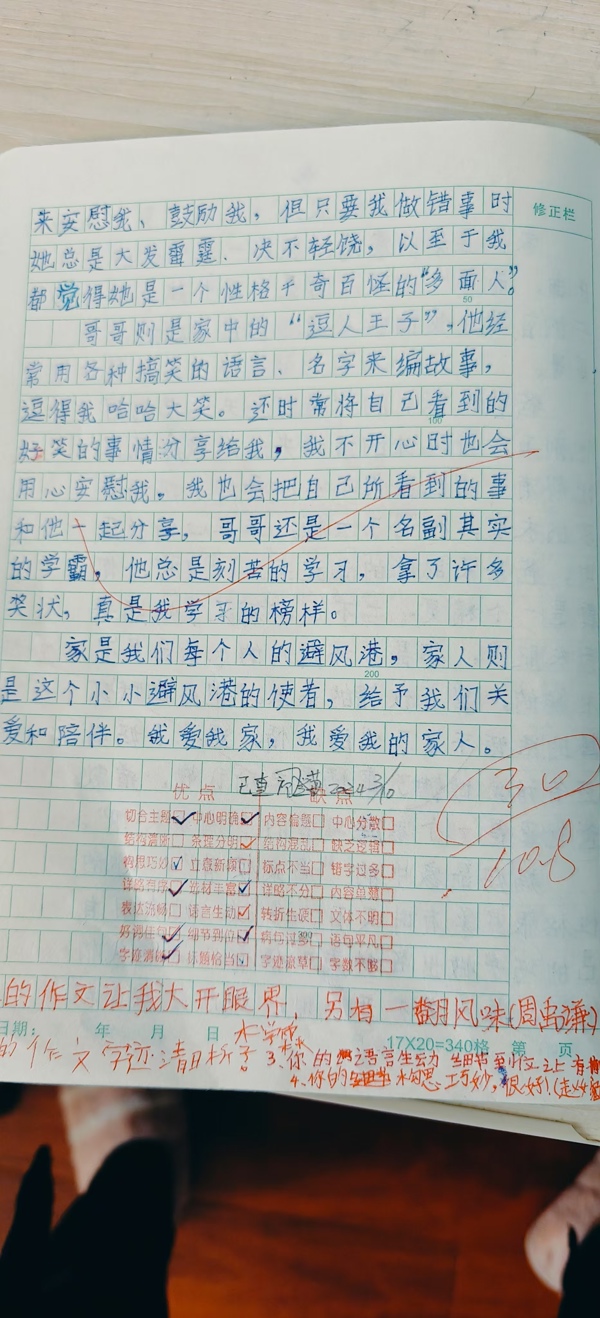 来安慰我、鼓励我，但只要我做错事时
她总是大发雷霆、决不轻饶，以至于我
都觉得她是一个性格千奇百怪的“多面人”。
修正栏
50
哥哥则是家中的“逗人王子”，他经
常用各种搞笑的语言、名字来编故事，
逗得我哈哈大笑。还时常将自己看到的
100
好笑的事情分享给我，我不开心时也会
用心安慰我。我也会把自己所看到的事
和他一起分享，哥哥还是一个名副其实
的学霸，他总是刻苦的学习，拿了许多
奖状，真是我学习的榜样。
家是我们每个人的避风港，家人则
200
是这个小小避风港的使者，给予我们关
爱和陪伴。我爱我家，我爱我的家人。
优点 缺点
切合主题 中心明确 内容偏题 中心分散
结构清晰 条理分明 结构混乱 缺乏逻辑
构思巧妙 立意新颖 标点不当 错字过多
详略有序 选材丰富 详略不分 内容单薄
表达流畅 语言生动 转折生硬 文体不明
好词佳句 细节到位 病句过多 语句平凡
字迹清晰 标题恰当 字迹潦草 字数不够
300
30
10.8
的作文让我大开眼界，另有一番风味(周禹谦)
日期： 年 月 日
17X20=340格 第 页
的作文字迹清晰
3、你的语言生动
4、你的构思巧妙，很好！